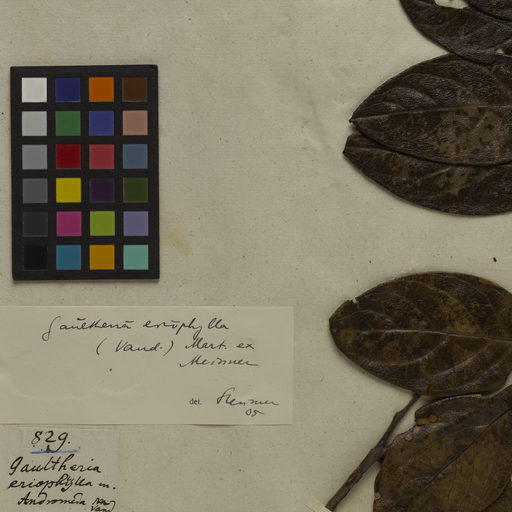 Gaultheria eriophylla
(Vand.) Mart. ex
Meisner
det.
05
829.
Gaultheria
eriophylla m.
Andromeda
Vand